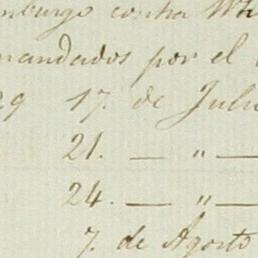 mburgo contra Whi
mandados por el
29 17. de Juli
21. — " —
24. — " —
7. de Agosto